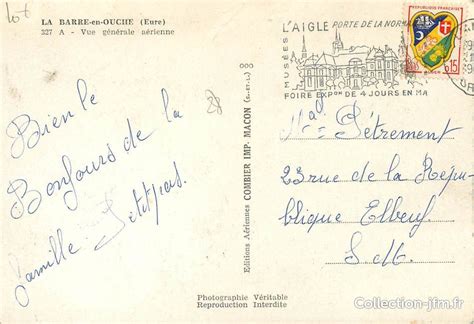 LA BARRE-en-OUCHE (Eure)
327 A - Vue générale aérienne
Bien le
Bonjours de la
famille Petitpas.
Editions Aériennes COMBIER IMP. MACON (S.-et-L.)
Photographie Véritable
Reproduction Interdite
L'AIGLE PORTE DE LA NORMA
MUSÉES
FOIRE EXPon DE 4 JOURS EN MA
REPUBLIQUE FRANÇAISE
0,15
Pétrement
23 rue de la Répu-
blique Elbeuf
S. M.
Collection-jfm.fr